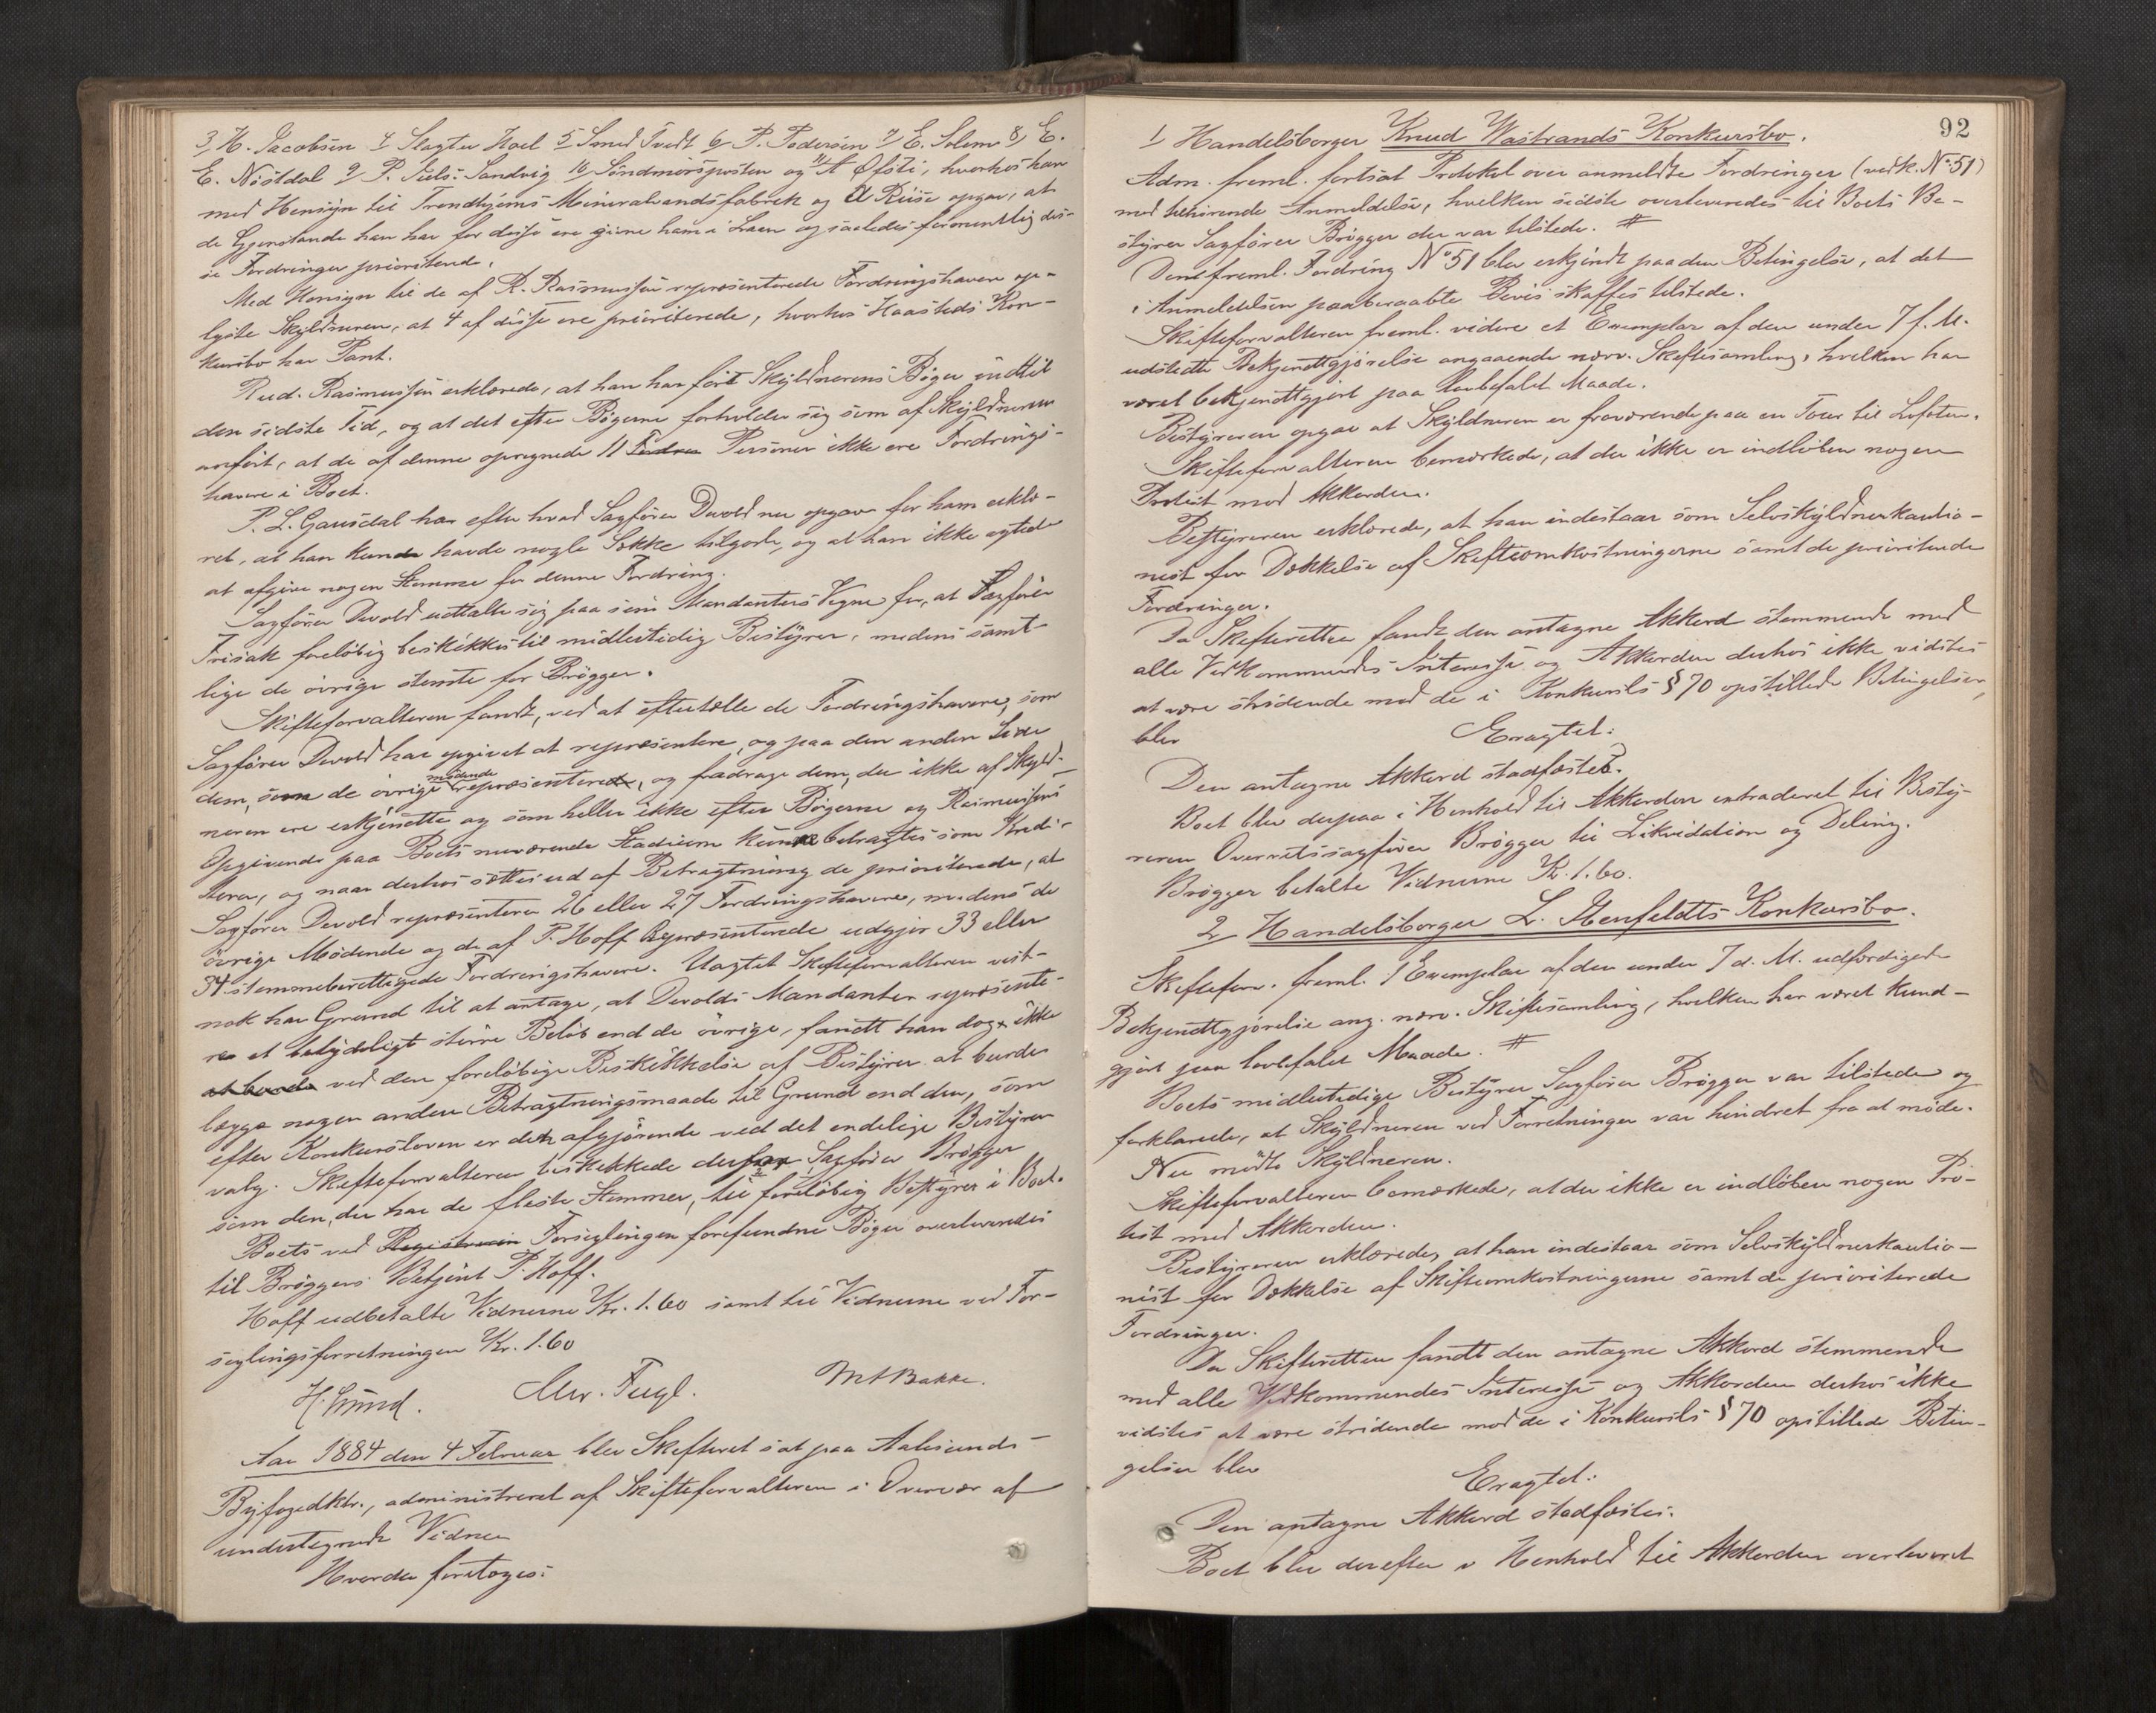 3/ H. Jacobsen 4 Slagter Hoel 5 Smed Tvedt 6/ P. Pedersen 7/ E. Solem 8/ E.
E. Nøstdal 9 P. Juels. Sandvig 10 Söndmörsposten og 11/ A Øfsti, hvorhos han
med Hensyn til Trondhjems Mineralvandsfabrik og A Riise opgav, at
de Gjenstande han har for disse ere givne ham i Laan og saaledes formentlig dis-
se Fordringer prioriterede.
Med Hensyn til de af R. Rasmussen repræsenterede Fordringshavere op-
lyste Skyldneren, at 4 af disse ere prioriterede, hvorhos Haasteds Kon-
kursbo har Pant.
Rud. Rasmussen erklærede, at han har ført Skyldnerens Bøger indtil
den sidste Tid, og at det efter Bøgerne forholder sig som af Skyldneren
anført, at de af denne opregnede 11 Fordre Personer ikke ere Fordrings-
havere i Boet.
P. L. Gausdal har efter hvad Sagfører Devold nu opgav for ham erklæ-
ret, at han kun havde nogle Sække tilgode, og at han ikke agtede
at afgive nogen Stemme for denne Fordring.
Sagfører Devold udtalte sig paa sine Mandanters Vegne for, at Sagfører
Frisak foreløbig beskikkes til midlertidig Bestyrer, medens samt-
lige de øvrige stemte for Brøgger.
Skifteforvalteren fandt, ved at eftertælle de Fordringshavere, som
Sagfører Devold har opgivet at repræsentere, og paa den anden Side
dem, som de øvrige mødende repræsentere, og fradrage dem, der ikke af Skyld-
neren ere erkjendte og som heller ikke efter Bøgerne og Rasmussens
Opgivende paa Boets nuværende Stadium kunne betragtes som Kredi-
torer, og naar derhos sættes ud af Betragtning de prioriterede, at
Sagfører Devold repræsenterer 26 eller 27 Fordringshavere, medens de
øvrige Mødende og de af P. Hoff Repræsenterede udgjør 33 eller
34 stemmeberettigede Fordringshavere. Uagtet Skifteforvalteren vist-
nok har Grund til at antage, at Devolds Mandanter repræsente-
re et betydeligt større Beløb end de øvrige, fandt han dog ikke
at burde ved den foreløbige Beskikkelse af Bestyrer at burde
lægge nogen anden Betragtningsmaade til Grund end den, som
efter Konkursloven er den afgjørende ved det endelige Bestyrer
valg. Skifteforvalteren beskikkede derfor Sagfører Brøgger
som den, der har de fleste Stemmer, til foreløbig Bestyrer i Boet.
Boets ved Registrerin Forseglingen forefundne Bøger overleveredes
til Brøggers Betjent P. Hoff.
Hoff udbetalte Vidnerne Kr. 1.60 samt til Vidnerne ved For-
seglingsforretningen Kr. 1.60
H. Lund. Mw. Fugl. M A Bakke.
Aar 1884 den 4 Februar blev Skifteret sat paa Aalesunds
Byfogedktr., administreret af Skifteforvalteren i Overvær af
undertegnede Vidner
Hvorda foretoges:
92
1/ Handelsborger Knud Wastrands Konkursbo.
Adm. freml. fortsat Protokol over anmeldte Fordringer (vedk. No. 51)
med tilhørende Anmeldelse, hvilken sidste overleveredes til Boets Be-
styrer Sagfører Brøgger der var tilstede. #
Den freml. Fordring No 51 blev erkjendt paa den Betingelse, at det
i Anmeldelsen paaberaabte Bevis skaffes tilstede.
Skifteforvalteren freml. videre et Exemplar af den under 7 f. M.
udstedte Bekjendtgjørelse angaaende nærv. Skiftesamling, hvilken har
været bekjendtgjort paa lovbefalet Maade.
Bestyreren opgav at Skyldneren er fraværende paa en Tour til Lofoten.
Skifteforvalteren bemærkede, at der ikke er indløben nogen
Protest mod Akkorden.
Bestyreren erklærede, at han indestaar som Selvskyldnerkautio-
nist for Dækkelse af Skifteomkostningerne samt de prioriterede
Fordringer.
Da Skifteretten fandt den antagne Akkord stemmende med
alle Vedkommendes Interesse og Akkorden derhos ikke vidstes
at være stridende mod de i Konkursls § 70 opstillede Betingelser,
blev
Eragtet:
Den antagne Akkord stadfæstes.
Boet blev derpaa i Henhold til Akkorden extraderet til Besty-
reren Overretssagfører Brøgger til Likvidation og Deling.
Brøgger betalte Vidnerne Kr. 1.60.
2/ Handelsborger L. Stenfeldts Konkursbo.
Skifteforv. freml. 1 Exemplar af den under 7 d. M. udfærdigede
Bekjendtgjørelse ang. nærv. Skiftesamling, hvilken har været kund-
gjort paa lovbefalet Maade. #
Boets midlertidige Bestyrer Sagfører Brøgger var tilstede og
forklarede, at Skyldneren ved Forretninger var hindret fra at møde.
Nu mødte Skyldneren.
Skifteforvalteren bemærkede, at der ikke er indløben nogen Pro-
test mod Akkorden.
Bestyreren erklærede, at han indestaar som Selvskyldnerkautio-
nist for Dækkelse af Skifteomkostningerne samt de prioriterede
Fordringer.
Da Skifteretten fandt den antagne Akkord stemmende
med alle Vedkommendes Interesse og Akkorden derhos ikke
vidstes at være stridende mod de i Konkursls § 70 opstillede Betin-
gelser blev
Eragtet:
Den antagne Akkord stadfæstes.
Boet blev derefter i Henhold til Akkorden overleveret